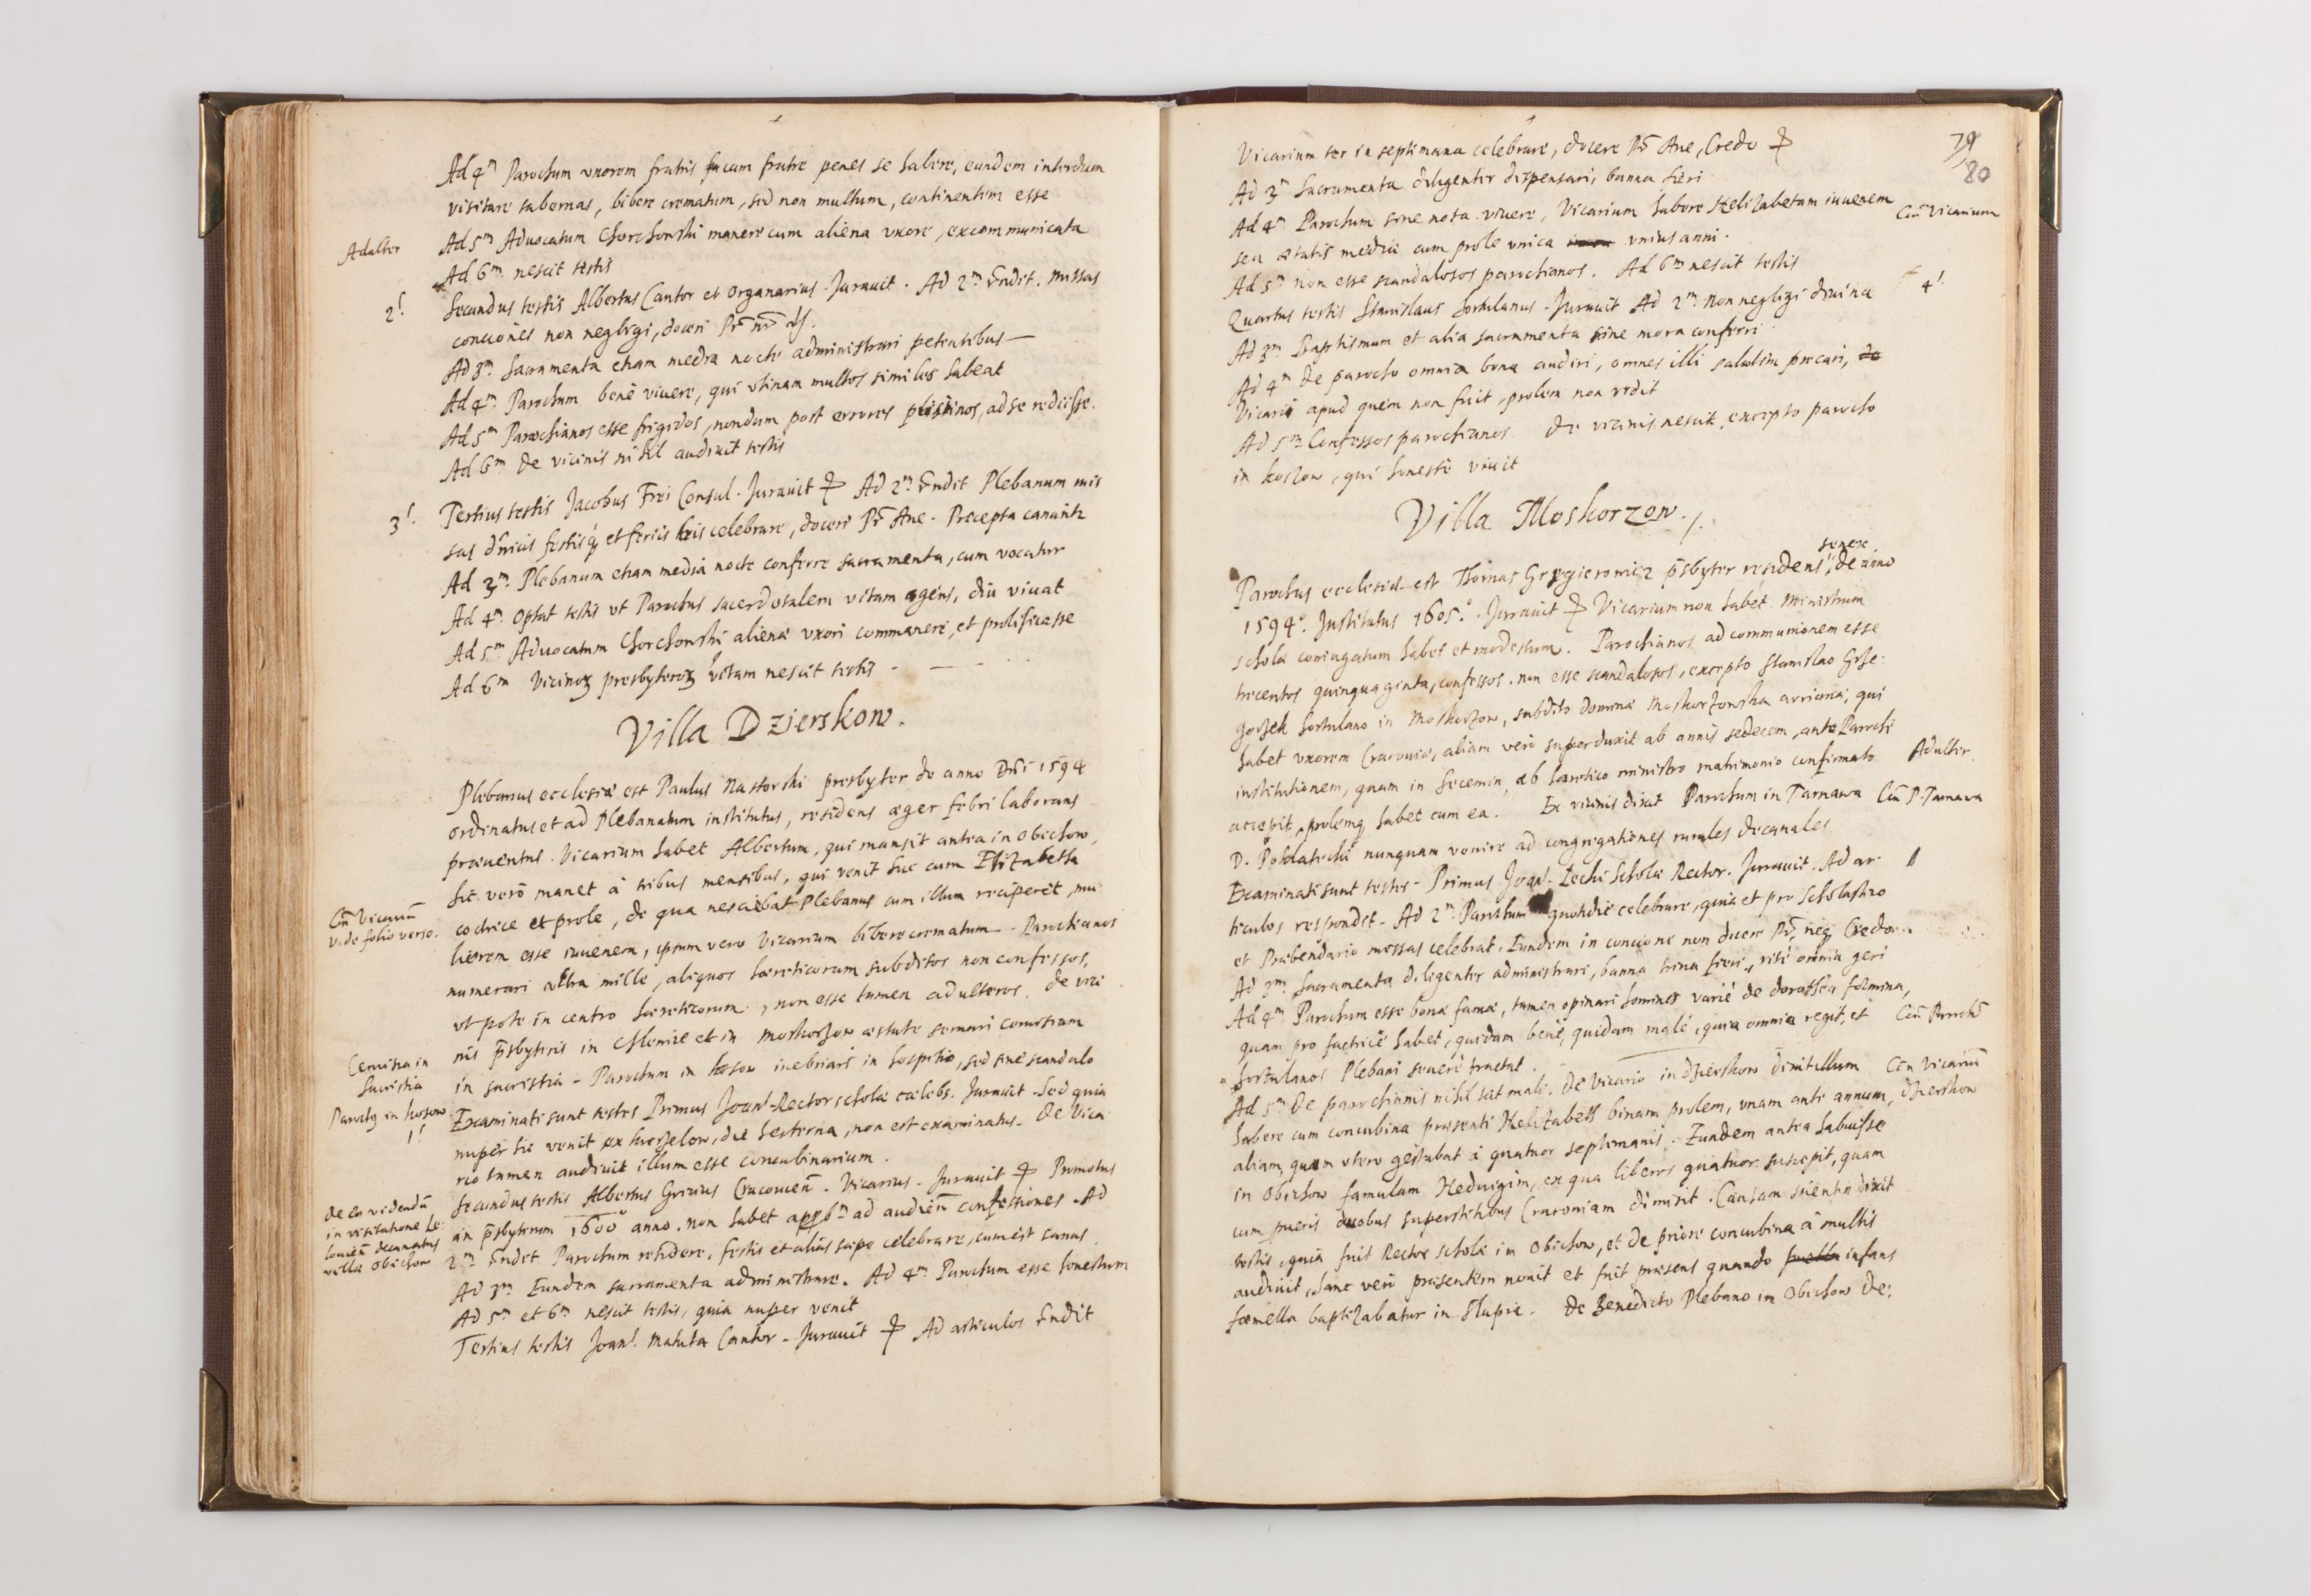 Ad 4m Parochum vxorem fratris cum fratre penes se habere, eundem interdum
visitare tabernas, bibere crematum, sed non multum, continentem esse
Adulter
Ad 5m Aduocatum Chorchonski manere cum aliena vxore, excommunicata
Ad 6m nescit testis
2s.
Secundus testis Albertus Cantor et Organarius. Jurauit. Ad 2m Rndit. Missas
conciones non negligi, doceri Pr nr
Ad 3m Sacramenta etiam media nocte administrari petentibus
Ad 4m Parochum bene viuere, qui vtinam multos similes habeat
Ad 5m Parochianos esse frigidos, nondum post errores pristinos, ad se rediisse.
Ad 6m De vicinis nihil audiuit testis
3s.
Tertius testis Jacobus Frei Consul. Jurauit Ad 2m Rndit Plebanum mis
sas dnicis festisq et feriis celebrare, doceri Pr Aue. Precepta
Ad 3m Plebanum etiam media nocte conferre sacramenta, cum vocatur
Ad 4m optat testis vt Parochus sacerdotalem vitam agens, diu viuat
Ad 5m Aduocatum Chorchonski aliena vxori commanere, et prolificasse
Ad 6m Vicinoꝝ presbyteroꝝ vitam nescit testis
Villa Dzierskow.
Plebanus ecclesiæ est Paulus Nastorski presbyter de anno Dni 1594
ordinatus et ad Plebanatum institutus, residens æger febri laborans
præuentus. Vicarium habet Albertum, qui mansit antea in Obichow,
hic vero manet à tribus mensibus, qui venit huc cum Elizabetha
Cũ Vicariũ
vide folio verso.
coctrice et prole, de qua nesciebat Plebanus cum illum reciperet, mu
lierem esse iuuenem, ipsum vero Vicarium bibere crematum. Parochianos
numerari vltra mille, aliquos hæreticorum subditos non confessos,
vt pote in centro hæreticorum, non esse tamen adulteros. De vici
nis psbyteris in Chlewice et in Moskorzow æstate seruari ceruisiam
Ceruisia in
Sacristia
in sacristia. Parochum in koson inebriari in hospitio, sed sine scandalo
Parochꝯ in koson
1s
Examinati sunt testes Primus Joans Rector scholæ cælebs. Jurauit. Sed quia
nuper hic venit ex kurzelow, die hesterna, non est examinatus. De Vica
rio tamen audiuit illum esse concubinarium.
De eo videndũ
in visitatione Le
louien decanatus
villæ Obichow
Secundus testis Albertus Grinius Cracouien. Vicarius. Jurauit Promotus
in psbyterum 1600 anno. non habet ad audien confessiones. Ad
2m Rndit Parochum residere, festis et alias sæpe celebrare, cum est sanus
Ad 3m Eundem sacramenta administrare. Ad 4m Parochum esse honestum
Ad 5m et 6m nescit testis, quia nuper venit
Tertius testis Joans Maluta Cantor. Jurauit Ad articulos Rndit
79
80
Vicarium ter in septimana celebrare, docere Pr Aue, Credo
Ad 3m Sacramenta diligenter dispensari, banna fieri
Ad 4m Parochum sine nota viuere, Vicarium habere Helizabetam iuuenem
Cũ Vicarium
seu ætatis mediæ cum prole vnica vnius anni.
Ad 5m Non esse scandalosos parochianos. Ad 6m nescit testis
4s.
Quartus testis Stanislaus hortulanus. Jurauit Ad 2m Non negligi diuina
Ad 3m Baptismum et alia sacramenta sine mora conferri
Ad 4m De parocho omnia bona audiri, omnes illi salutem precari, de
Vicario apud quem non fuit, prolem non vidit
Ad 5m Confessos parochianos. De vicinis nescit, excepto parocho
in koszow, qui honeste viuit
Villa Moskorzow.
Parochus ecclesiæ est Thomas Gregierowicz psbyter residens senex, de anno
1594. Institutus 1605. Jurauit Vicarium non habet. Ministrum
scholæ coniugatum habet et modestum. Parochianos ad communionem esse
trecentos quinquaginta, confessos. non esse scandalosos, excepto Stanislao Grze:
gorzek hortulano in Moskorzow, subdito dominæ Moskorzowska arrianæ, qui
habet vxorem Cracouiæ, aliam vero superduxit ab annis sedecem, ante Parochi
Adulter.
institutionem, quam in Secemin, ab hæretico ministro matrimonio confirmato
accepit, prolemq habet cum ea. Ex vicinis dixit Parochum in Tarnawa
Cũ P. Tarnawa
D. nunquam venire ad congregationes rurales decanales
Examinati sunt testes. Primus Joans Lechi Scholæ Rector. Jurauit. Ad ar
ticulos respondit. Ad 2m Parochum quotidie celebrare, quia et pro scholastico
et Præbendario missas celebrat. Eundem in concione non ducere Pr, neq Credo
Ad 3m Sacramenta diligenter administrari, banna trina fieri, rite omnia geri
Ad 4m Parochum esse bonæ famæ, tamen opinari homines varie de Dorothea fæmina,
quam pro factrice habet, quidam bene, quidam male, quia omnia regit, et
Cũ Parochũ
hortulanos Plebani seuere tractat.
Ad 5m De parochianis nihil scit mali. De Vicario in Dzierskow dixit illum
Cũ Vicariũ
Dzierskow
habere cum concubina præsenti Helizabeth binam prolem, vnam ante annum,
aliam, quam vtero gestabat à quatuor septimanis. Eundem antea habuisse
in Obichow famulam Heduigim, ex qua liberos quatuor suscepit, quam
cum pueris duobus superstitibus Cracouiam dimisit. Causam scientiæ dixit
testis, quia fuit Rector scholæ in Obichow, et de priore concubina à multis
audiuit, hanc vero præsentem nouit et fuit præsens quando puella infans
fæmella baptizabatur in Slupia. De Benedicto Plebano in Obichow de: